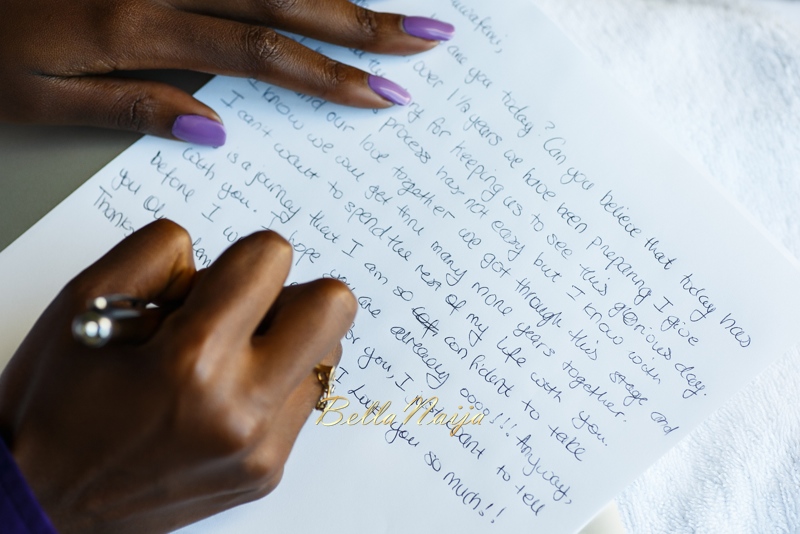 are you today? Can you believe that today has
over 1½ years we have been preparing I give
for keeping us to see this glorious day.
process has not easy but I know with
and our love together we got through this stage and
I know we can get thru many more years together.
I can't want to spend the rest of my life with you.
is a journey that I am so confident to take
with you. I hope you are already oooo!!! Anyway,
before I for you, I just want to tell
you I love you so much!!
Thanks
BellaNaija